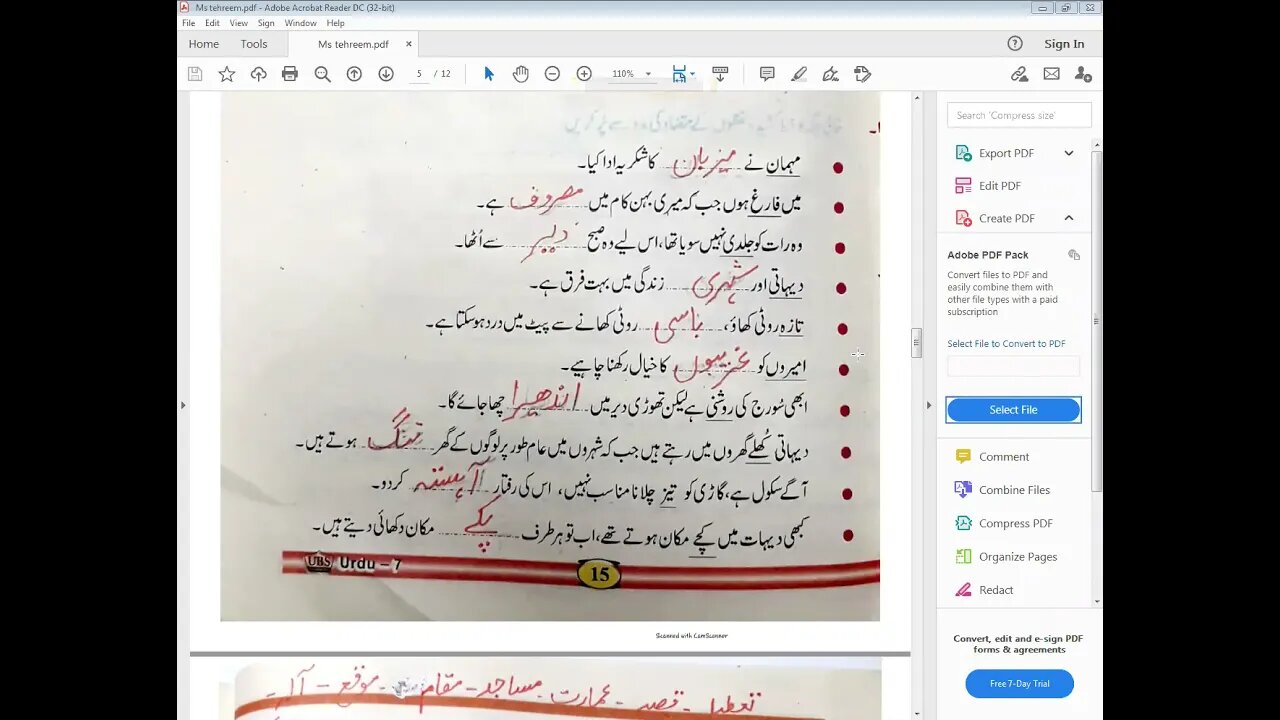 Ms tehreem.pdf - Adobe Acrobat Reader DC (32-bit)
File Edit View Sign Window Help
Home Tools Ms tehreem.pdf × Sign In
5 / 12 110%
مہمان نے میزبان کا شکریہ ادا کیا۔
میں فارغ ہوں جب کہ میری بہن کام میں مصروف ہے۔
وہ رات کو جلدی نہیں سویا تھا، اس لیے وہ صبح دیر سے اُٹھا۔
دیہاتی اور شہری زندگی میں بہت فرق ہے۔
تازہ روٹی کھاؤ، باسی روٹی کھانے سے پیٹ میں درد ہوسکتا ہے۔
امیروں کو غریبوں کا خیال رکھنا چاہیے۔
ابھی سُورج کی روشنی ہے لیکن تھوڑی دیر میں اندھیرا چھا جائے گا۔
دیہاتی کُھلے گھروں میں رہتے ہیں جب کہ شہروں میں عام طور پر لوگوں کے گھر تنگ ہوتے ہیں۔
آگے سکول ہے، گاڑی کو تیز چلانا مناسب نہیں، اس کی رفتار آہستہ کردو۔
کبھی دیہات میں کچے مکان ہوتے تھے، اب تو ہر طرف پکے مکان دکھائی دیتے ہیں۔
UBS Urdu – 7 15
Scanned with CamScanner
عمارت - مساجد - مقام - موقع
Search 'Compress size'
Export PDF
Edit PDF
Create PDF
Adobe PDF Pack
Convert files to PDF and
easily combine them with
other file types with a paid
subscription
Select File to Convert to PDF
Select File
Comment
Combine Files
Compress PDF
Organize Pages
Redact
Convert, edit and e-sign PDF
forms & agreements
Free 7-Day Trial